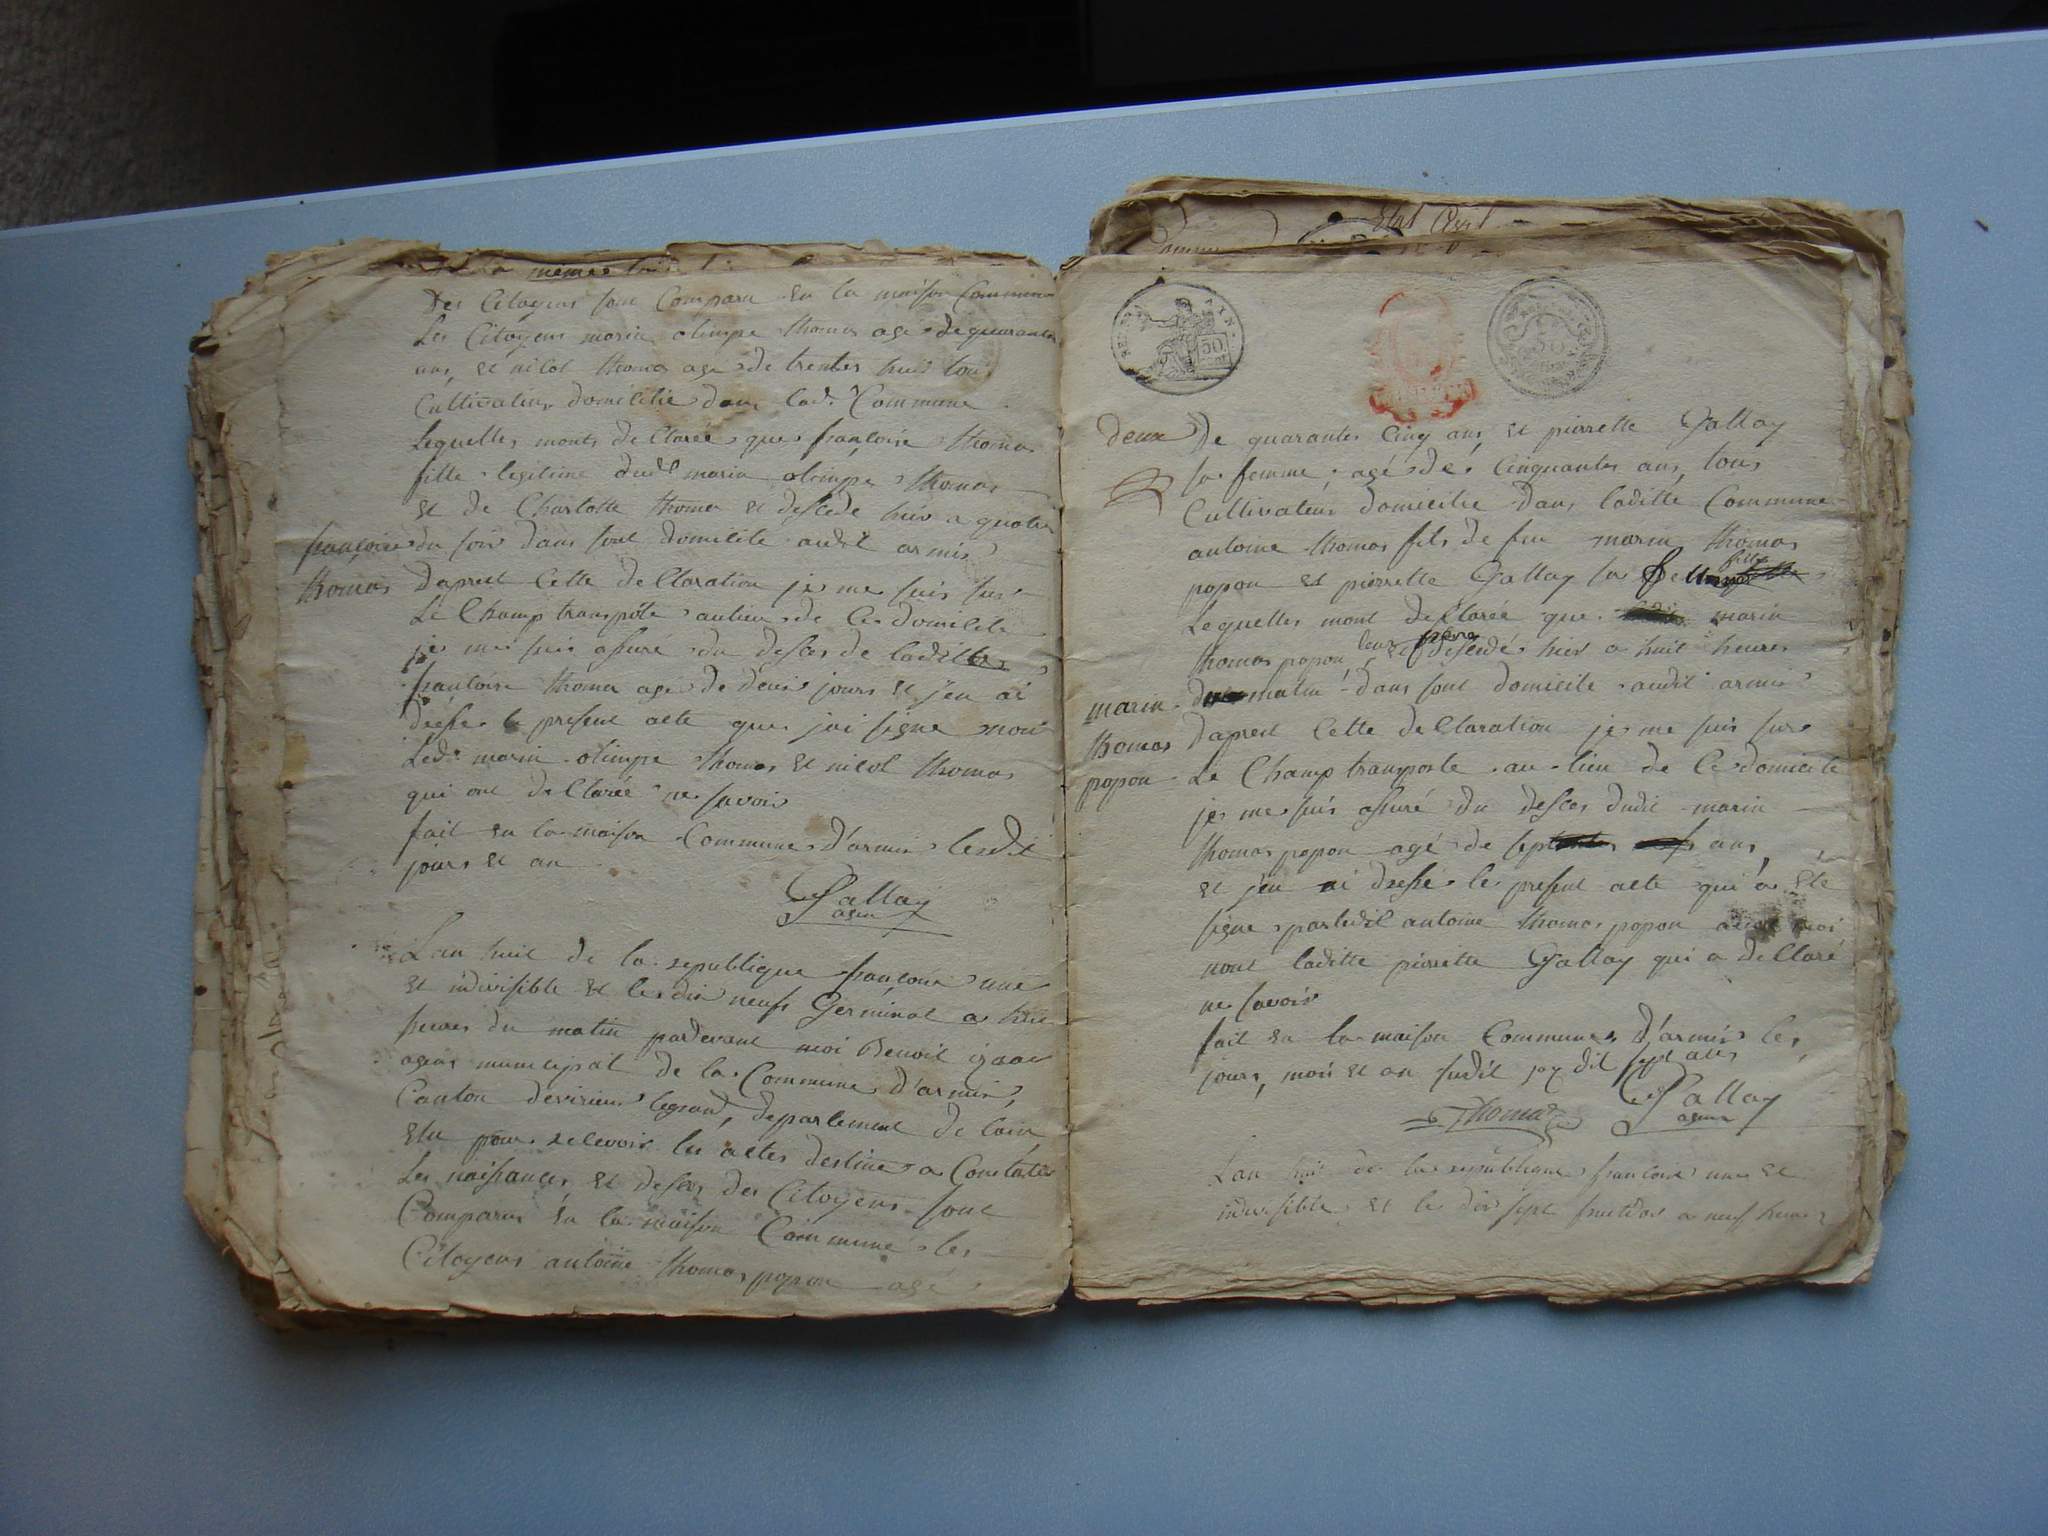 des Citoyens sont Comparu en la maison Commune
Les Citoyens marin olimpe thomas age de quarante
ans, et nicol thomas age de trentes huit tous
Cultivateur domicilie dans lad. Commune
Lequelles monts declarée que françoise thomas
fille legitime dudt marin olimpe thomas
et de Charlotte thomas et descede hier a quatre
du soir dans sont domicile audit armis
françoise
thomas
daprest Cette declaration je me suis sur
Le Champ transpote aulieu de Ce domicile
je me suis assuré du desces de laditte
françoise thomas age de deux jours et j'en ai
dressé le present acte que jai signe non
Led. marin olimpe thomas et nicol thomas
qui ont declarée ne savoir
fait en la maison Commune d'armis lesdit
jours et an
Gallay
agent
Lan huit de la republique françoise une
et indivisible et le dix neuf Germinal a huit
heures du matin pardevant moi Benoit
agent municipal de la Commune d'armis,
Canton devirieux legrand, departement de lain
elu pour recevoir les actes destine a Constater
Les naissances et desces des Citoyens sont
Comparus en la maison Commune les
Citoyens antoine thomas popon agé
RÉP. FRA.
50
deux
de quarantes Cinq ans et pierrette Gallay
sa femme, agé de Cinquantes ans, tous
Cultivateur domicilie dans laditte Commune
antoine thomas fils de feu marin thomas
popon et pierrette Gallay sa belle fille
Lequelles mont declarée que marin
thomas popon, leur pere et descedé hier a huit heures
du matin dans sont domicile audit armis
marin
thomas
popon
daprest Cette declaration je me suis sur
Le Champ transporte au lieu de Ce domicile
je me suis assuré du desces dudit marin
thomas popon agé de ans,
et j'en ai dressé le present acte qui a eté
signe parledit antoine thomas popon avec moi
nont laditte pierrette Gallay qui a declaré
ne savoir
fait en la maison Commune d'armis les
jours, mois et an susdit
Thomas Gallay
agent
Lan huit de la republique françoise une et
indivisible et le dix sept fructidor a neuf heures